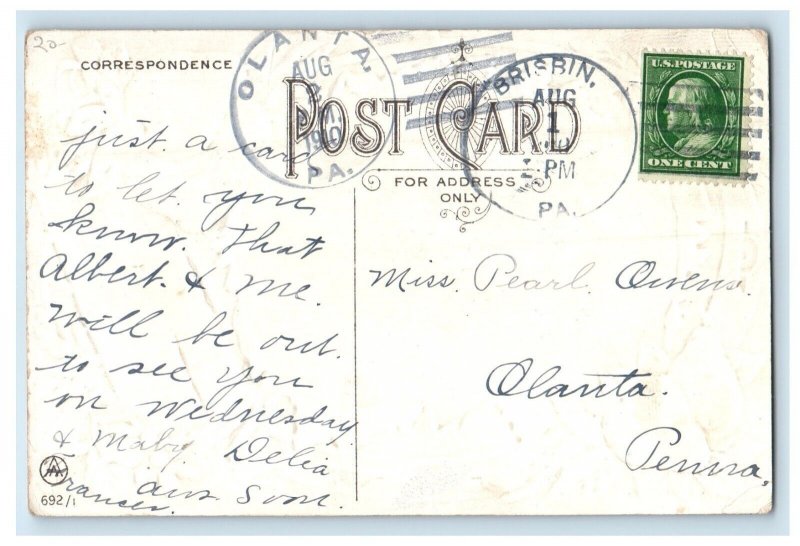 20-
CORRESPONDENCE
OLANTA,
AUG
1910
PA.
BRISBIN,
AUG
1
PM
PA.
U.S. POSTAGE
ONE CENT
POST CARD
FOR ADDRESS
ONLY
just a card
to let you
know. that
Albert. & me.
will be out.
to see you
on Wednesday
& Maby. Delia
ans soon.
Frances.
692/1
Miss. Pearl. Owens.
Olanta.
Penna,